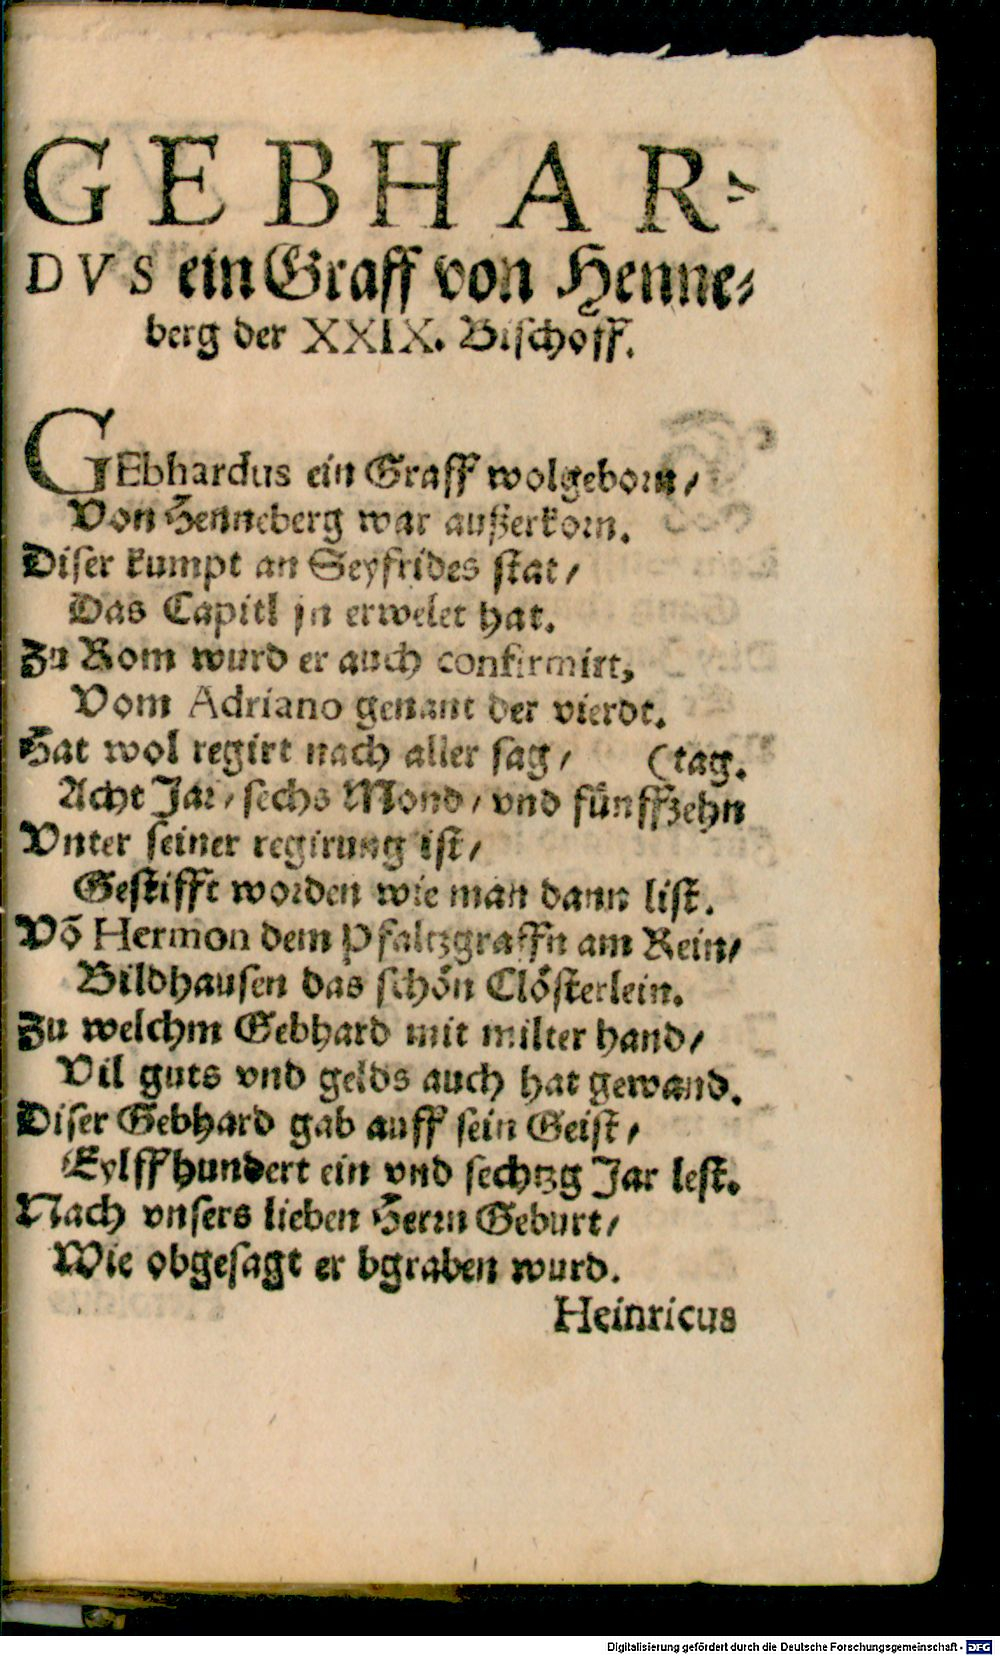 GEBHAR-
DVS ein Graff von Henne-
berg der XXIX. Bischoff.
GEbhardus ein Graff wolgeborn/
Von Henneberg war außerkorn.
Diser kumpt an Seyfrides stat/
Das Capitl jn erwelet hat.
Zu Rom wurd er auch confirmirt,
Vom Adriano genant der vierdt.
Hat wol regirt nach aller sag/ (tag.
Acht Jar/ sechs Mond/ vnd fünffzehn
Vnter seiner regirung ist/
Gestifft worden wie man dann list.
Võ Hermon dem Pfaltzgraffn am Rein/
Bildhausen das schön Clösterlein.
Zu welchm Gebhard mit milter hand/
Vil guts vnd gelds auch hat gewand.
Diser Gebhard gab auff sein Geist/
Eylffhundert ein vnd sechtzg Jar lest.
Nach vnsers lieben Herrn Geburt/
Wie obgesagt er bgraben wurd.
Heinricus
Digitalisierung gefördert durch die Deutsche Forschungsgemeinschaft - DFG